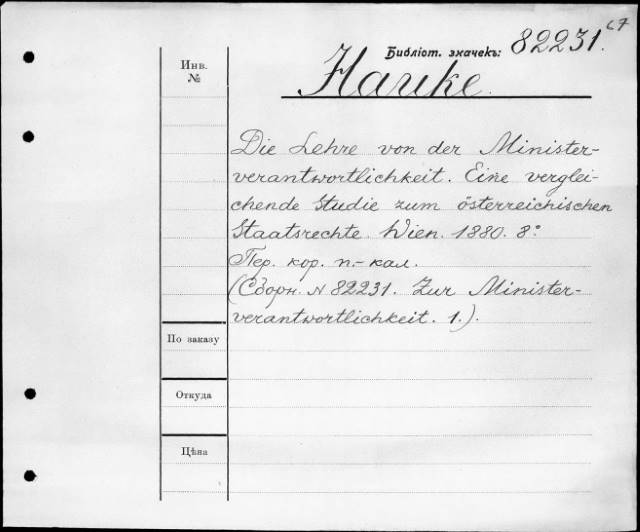 67
Библіот. значекъ: 82231.
Инв.
№
Hauke.
Die Lehre von der Minister-
verantwortlichkeit. Eine verglei-
chende Studie zum österreichischen
Staatsrechte. Wien. 1880. 8°.
Пер. кор. п.-кал.
(Сборн. № 82231. Zur Minister-
verantwortlichkeit. 1.).
По заказу
Откуда
Цѣна